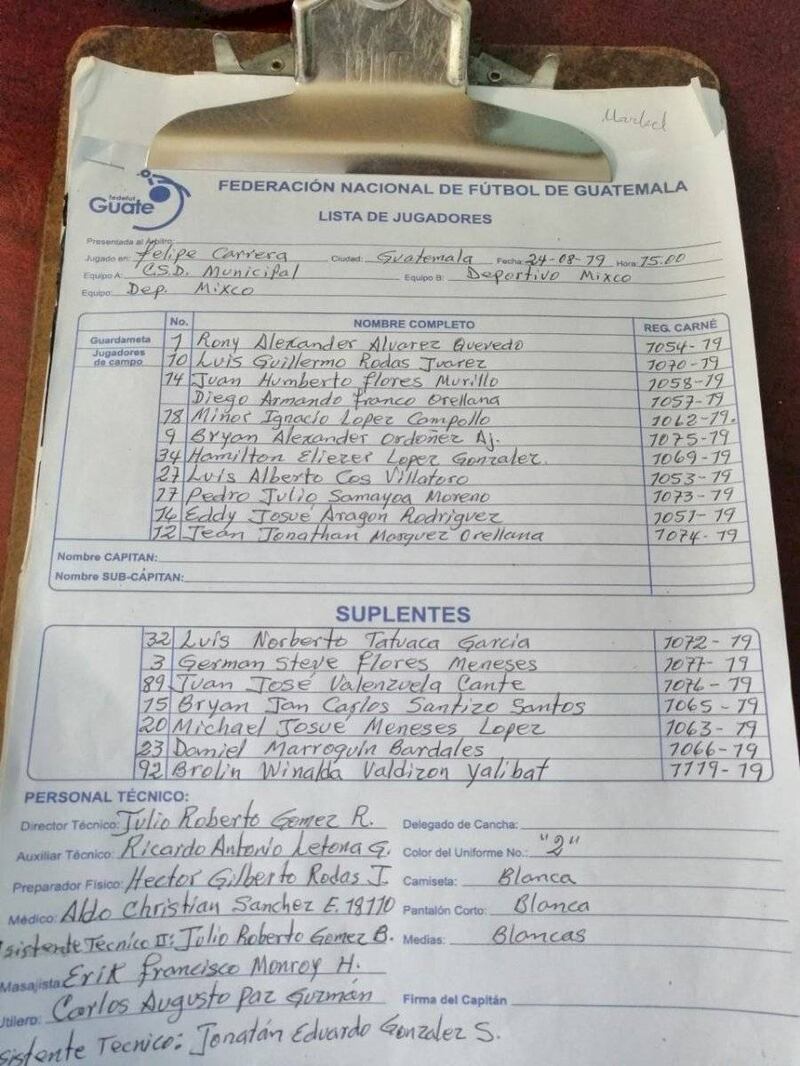 Maribel
fedefut
Guate
FEDERACIÓN NACIONAL DE FÚTBOL DE GUATEMALA
LISTA DE JUGADORES
Presentada al Árbitro:
Jugado en: Felipe Carrera Ciudad: Guatemala Fecha: 24-08-19 Hora: 15.00
Equipo A: C.S.D. Municipal Equipo B: Deportivo Mixco
Equipo: Dep. Mixco
No. NOMBRE COMPLETO REG. CARNÉ
Guardameta 1 Rony Alexander Alvarez Quevedo 1054-19
Jugadores de campo 10 Luis Guillermo Rodas Juarez 1070-19
14 Juan Humberto Flores Murillo 1058-19
Diego Armando Franco Orellana 1057-19
18 Minor Ignacio Lopez Campollo 1062-19.
9 Bryan Alexander Ordoñez Aj. 1075-19
34 Hamilton Eliezer Lopez Gonzalez. 1069-19
27 Luis Alberto Cos Villatoro 1053-19
17 Pedro Julio Samayoa Moreno 1073-19
16 Eddy Josué Aragon Rodriguez 1051-19
12 Jean Jonathan Marquez Orellana 1074-19
Nombre CAPITAN:
Nombre SUB-CÁPITAN:
SUPLENTES
32 Luis Norberto Tatuaca Garcia 1072-19
3 German Steve Flores Meneses 1077-19
89 Juan José Valenzuela Cante 1076-19
15 Bryan Jan Carlos Santizo Santos 1065-19
20 Michael Josué Meneses Lopez 1063-19
23 Daniel Marroquin Bardales 1066-19
92 Brolin Winalda Valdizon Yalibat 1119-19
PERSONAL TÉCNICO:
Director Técnico: Julio Roberto Gomez R. Delegado de Cancha:
Auxiliar Técnico: Ricardo Antonio Letona G. Color del Uniforme No.: "2"
Preparador Físico: Hector Gilberto Rodas J. Camiseta: Blanca
Médico: Aldo Christian Sanchez E. 18110 Pantalón Corto: Blanca
sistente Técnico II: Julio Roberto Gomez B. Medias: Blancas
Masajista Erik Francisco Monroy H.
Utilero: Carlos Augusto Paz Guzmán Firma del Capitán
sistente Tecnico: Jonatán Eduardo Gonzalez S.